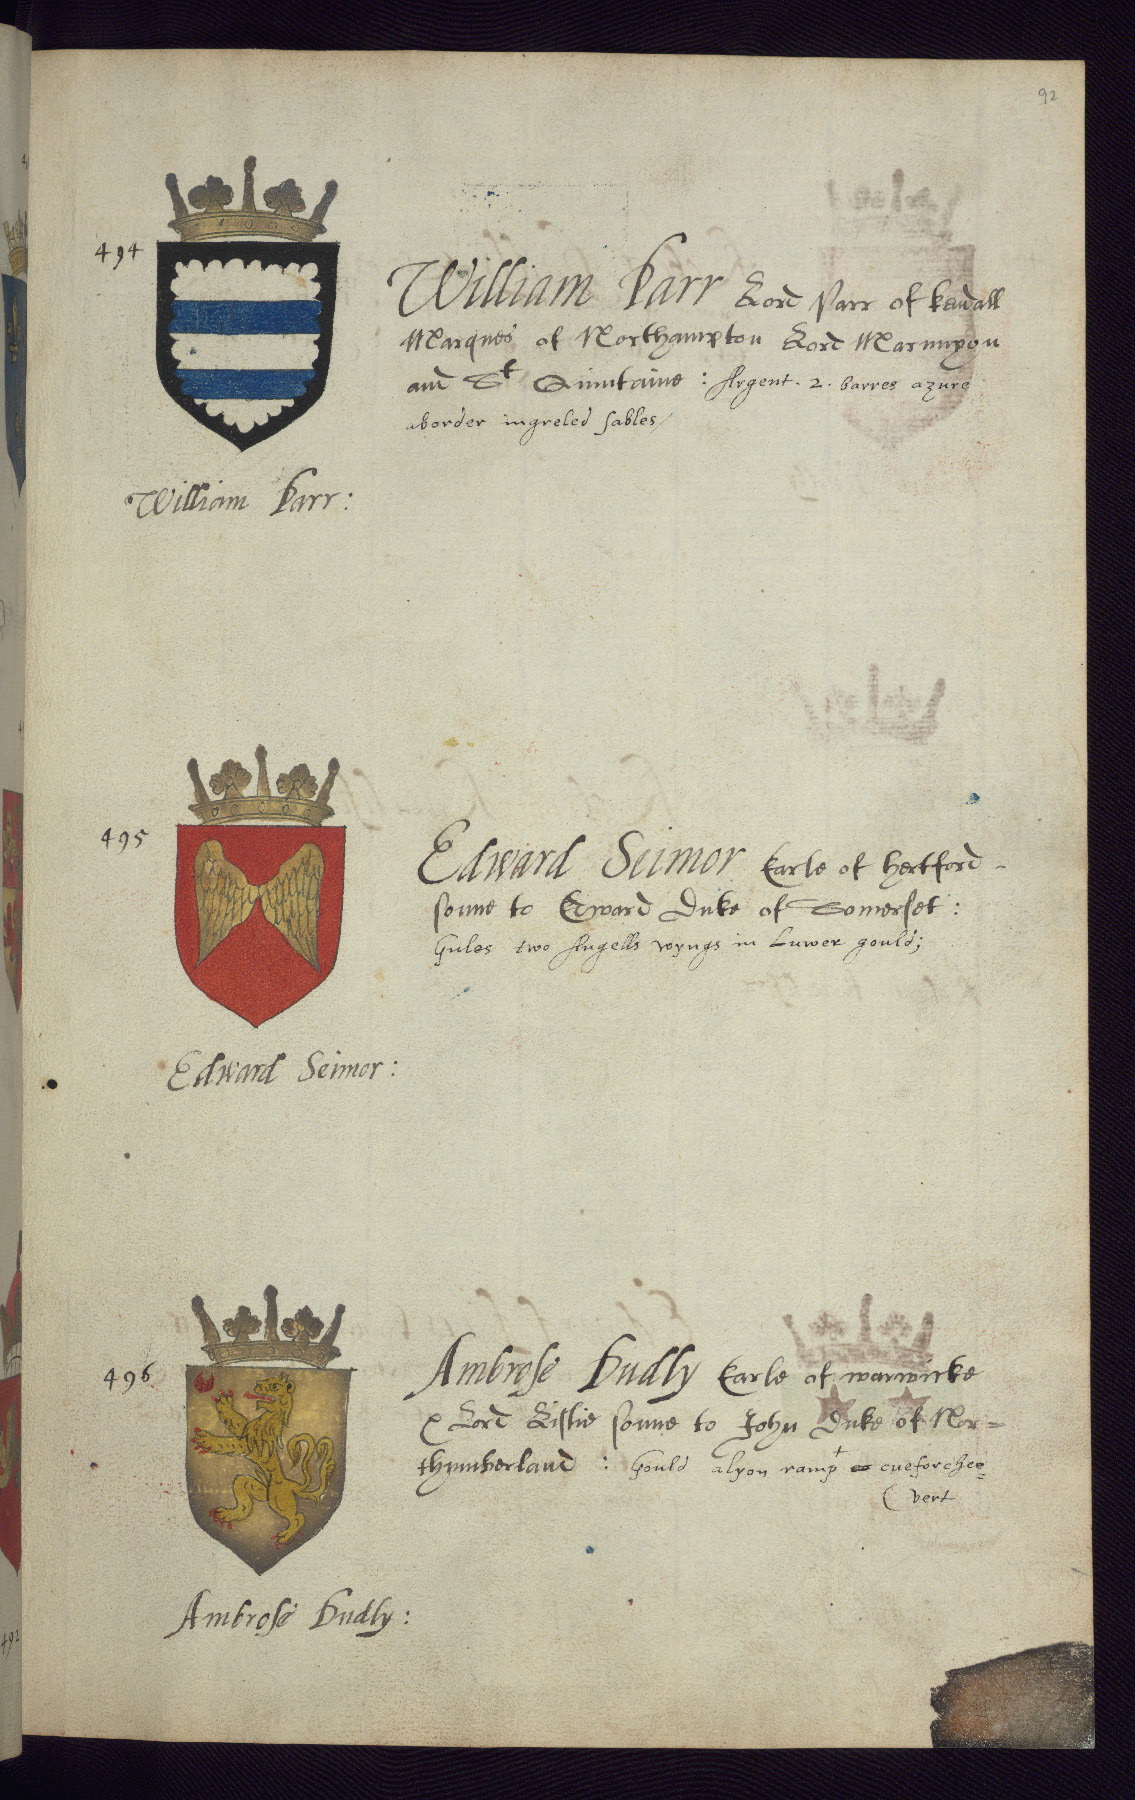 92
494
William Parr Lord Parr of kendall
Marques of Northampton Lord Marmyon
and St Quintaine : Argent . 2 . barres azure
aborder ingreled sables
William Parr :
495
Edward Seimor Earle of hertford -
sonne to Edward Duke of Somerset :
Gules two Angells wyngs in Luwer gould ;
Edward Seimor :
496
Ambrose Dudly Earle of warwicke
& Lord Lislie sonne to John Duke of Nor=
thumberland : Gould alyon ramp cueforchee=
( vert
Ambrose Dudly :
492